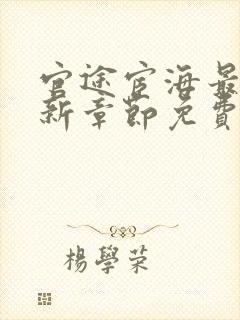 官途宦海最
新章節免費
楊學荣